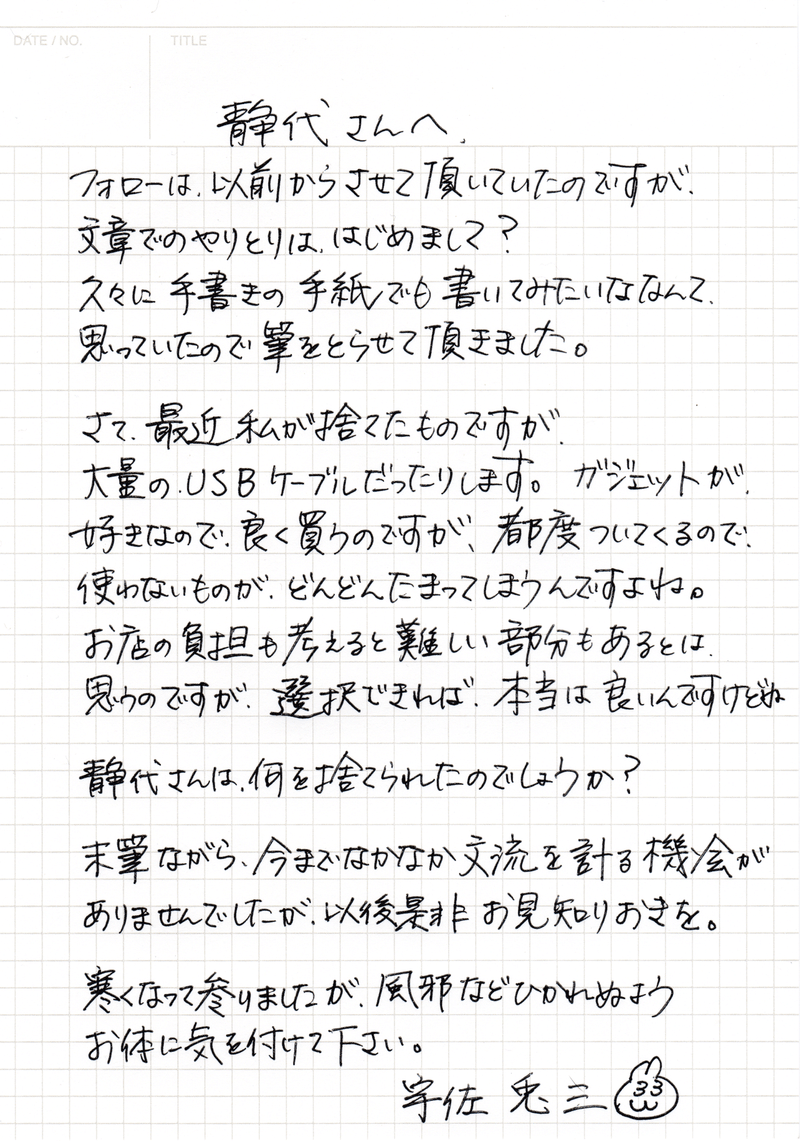 DATE / NO.
TITLE
静代さんへ、
フォローは、以前からさせて頂いていたのですが、
文章でのやりとりは、はじめまして？
久々に手書きの手紙でも書いてみたいななんて、
思っていたので筆をとらせて頂きました。
さて、最近私が捨てたものですが、
大量の、USBケーブルだったりします。ガジェットが、
好きなので、良く買うのですが、都度ついてくるので、
使わないものが、どんどんたまってしまうんですよね。
お店の負担も考えると難しい部分もあるとは、
思うのですが、選択できれば、本当は良いんですけどね
静代さんは、何を捨てられたのでしょうか？
末筆ながら、今までなかなか交流を計る機会が
ありませんでしたが、以後是非お見知りおきを。
寒くなって参りましたが、風邪などひかれぬよう
お体に気を付けて下さい。
宇佐兎三